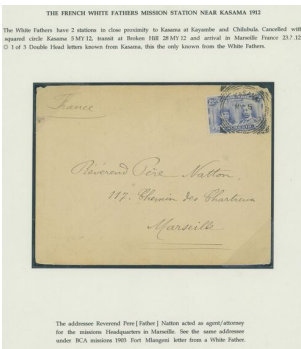 THE FRENCH WHITE FATHERS MISSION STATION NEAR KASAMA 1912
The White Fathers have 2 stations in close proximity to Kasama at Kayambe and Chilubula. Cancelled with
squared circle Kasama 5 MY 12, transit at Broken Hill 28 MY 12 and arrival in Marseille France 23.7.12
O 1 of 3 Double Head letters known from Kasama, this the only known from the White Fathers.
France
Révérend Père Natton
117. Chemin des Chartreux
Marseille
The addressee Reverend Pere [ Father ] Natton acted as agent/attorney
for the missions Headquarters in Marseille. See the same addresser
under BCA missions 1903 Fort Mlangeni letter from a White Father.